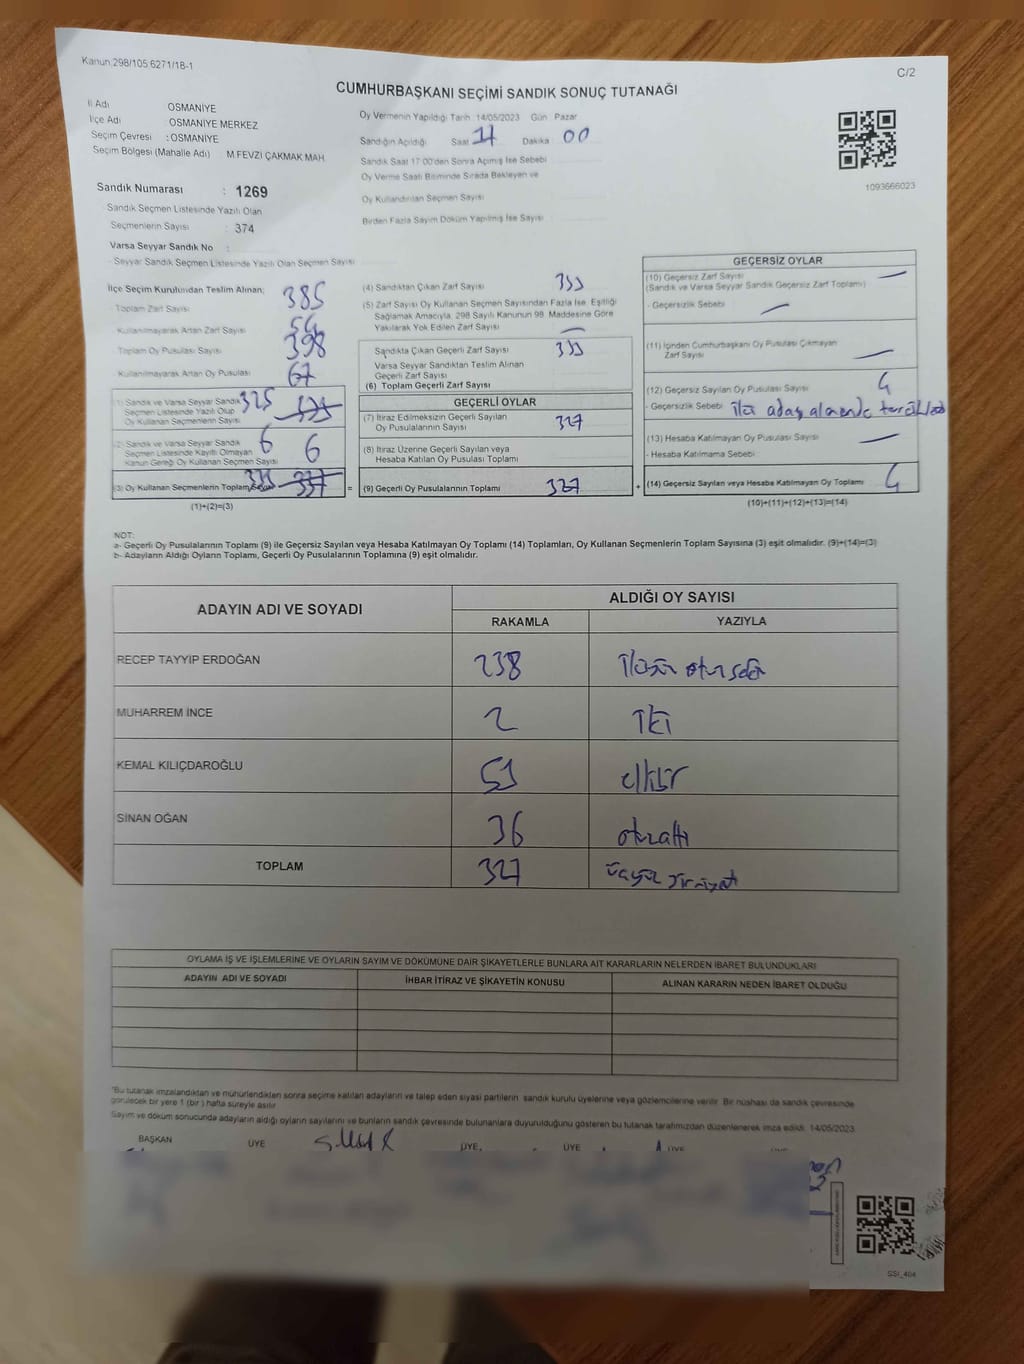 Kanun:298/105 6271/18-1
C/2
CUMHURBAŞKANI SEÇİMİ SANDIK SONUÇ TUTANAĞI
İl Adı OSMANİYE
İlçe Adı OSMANİYE MERKEZ
Seçim Çevresi : OSMANİYE
Seçim Bölgesi (Mahalle Adı) M.FEVZİ ÇAKMAK MAH.
Sandık Numarası : 1269
Sandık Seçmen Listesinde Yazılı Olan
Seçmenlerin Sayısı : 374
Varsa Seyyar Sandık No :
- Seyyar Sandık Seçmen Listesinde Yazılı Olan Seçmen Sayısı
Oy Vermenin Yapıldığı Tarih 14/05/2023 Gün Pazar
Sandığın Açıldığı Saat 17 Dakika 00
Sandık Saat 17:00'den Sonra Açılmış İse Sebebi
Oy Verme Saati Bitiminde Sırada Bekleyen ve
Oy Kullandırılan Seçmen Sayısı
Birden Fazla Sayım Döküm Yapılmış İse Sayısı
1093666023
İlçe Seçim Kurulundan Teslim Alınan:
Toplam Zarf Sayısı 385
Kullanılmayarak Artan Zarf Sayısı
Toplam Oy Pusulası Sayısı 398
Kullanılmayarak Artan Oy Pusulası 67
(1) Sandık ve Varsa Seyyar Sandık 325
Seçmen Listesinde Yazılı Olup
Oy Kullanan Seçmenlerin Sayısı
(2) Sandık ve Varsa Seyyar Sandık 6 6
Seçmen Listesinde Kayıtlı Olmayan
Kanun Gereği Oy Kullanan Seçmen Sayısı
(3) Oy Kullanan Seçmenlerin Toplam Sayısı 337 =
(1)+(2)=(3)
(4) Sandıktan Çıkan Zarf Sayısı 333
(5) Zarf Sayısı Oy Kullanan Seçmen Sayısından Fazla İse, Eşitliği
Sağlamak Amacıyla, 298 Sayılı Kanunun 98. Maddesine Göre
Yakılarak Yok Edilen Zarf Sayısı —
Sandıkta Çıkan Geçerli Zarf Sayısı 333
Varsa Seyyar Sandıktan Teslim Alınan
Geçerli Zarf Sayısı
(6) Toplam Geçerli Zarf Sayısı
GEÇERLİ OYLAR
(7) İtiraz Edilmeksizin Geçerli Sayılan
Oy Pusulalarının Sayısı 327
(8) İtiraz Üzerine Geçerli Sayılan veya
Hesaba Katılan Oy Pusulası Toplamı
(9) Geçerli Oy Pusulalarının Toplamı 327 +
GEÇERSİZ OYLAR
(10) Geçersiz Zarf Sayısı —
(Sandık ve Varsa Seyyar Sandık Geçersiz Zarf Toplamı)
- Geçersizlik Sebebi —
(11) İçinden Cumhurbaşkanı Oy Pusulası Çıkmayan
Zarf Sayısı —
(12) Geçersiz Sayılan Oy Pusulası Sayısı 4
- Geçersizlik Sebebi
(13) Hesaba Katılmayan Oy Pusulası Sayısı —
- Hesaba Katılmama Sebebi
(14) Geçersiz Sayılan veya Hesaba Katılmayan Oy Toplamı 4
(10)+(11)+(12)+(13)=(14)
NOT:
a- Geçerli Oy Pusulalarının Toplamı (9) ile Geçersiz Sayılan veya Hesaba Katılmayan Oy Toplamı (14) Toplamları, Oy Kullanan Seçmenlerin Toplam Sayısına (3) eşit olmalıdır. (9)+(14)=(3)
b- Adayların Aldığı Oyların Toplamı, Geçerli Oy Pusulalarının Toplamına (9) eşit olmalıdır.
ADAYIN ADI VE SOYADI ALDIĞI OY SAYISI
RAKAMLA YAZIYLA
RECEP TAYYİP ERDOĞAN 238 ikiyüz otuz sekiz
MUHARREM İNCE 2 İKİ
KEMAL KILIÇDAROĞLU 51 ellibir
SİNAN OĞAN 36 otuzaltı
TOPLAM 327 üçyüz yirmiyedi
OYLAMA İŞ VE İŞLEMLERİNE VE OYLARIN SAYIM VE DÖKÜMÜNE DAİR ŞİKAYETLERLE BUNLARA AİT KARARLARIN NELERDEN İBARET BULUNDUKLARI
ADAYIN ADI VE SOYADI İHBAR İTİRAZ VE ŞİKAYETİN KONUSU ALINAN KARARIN NEDEN İBARET OLDUĞU
*Bu tutanak imzalandıktan ve mühürlendikten sonra seçime katılan adayların ve talep eden siyasi partilerin sandık kurulu üyelerine veya gözlemcilerine verilir. Bir nüshası da sandık çevresinde
görülecek bir yere 1 (bir) hafta süreyle asılır.
Sayım ve döküm sonucunda adayların aldığı oyların sayılarını ve bunların sandık çevresinde bulunanlara duyurulduğunu gösteren bu tutanak tarafımızdan düzenlenerek imza edildi. 14/05/2023
BAŞKAN ÜYE ÜYE ÜYE ÜYE
SSI_404